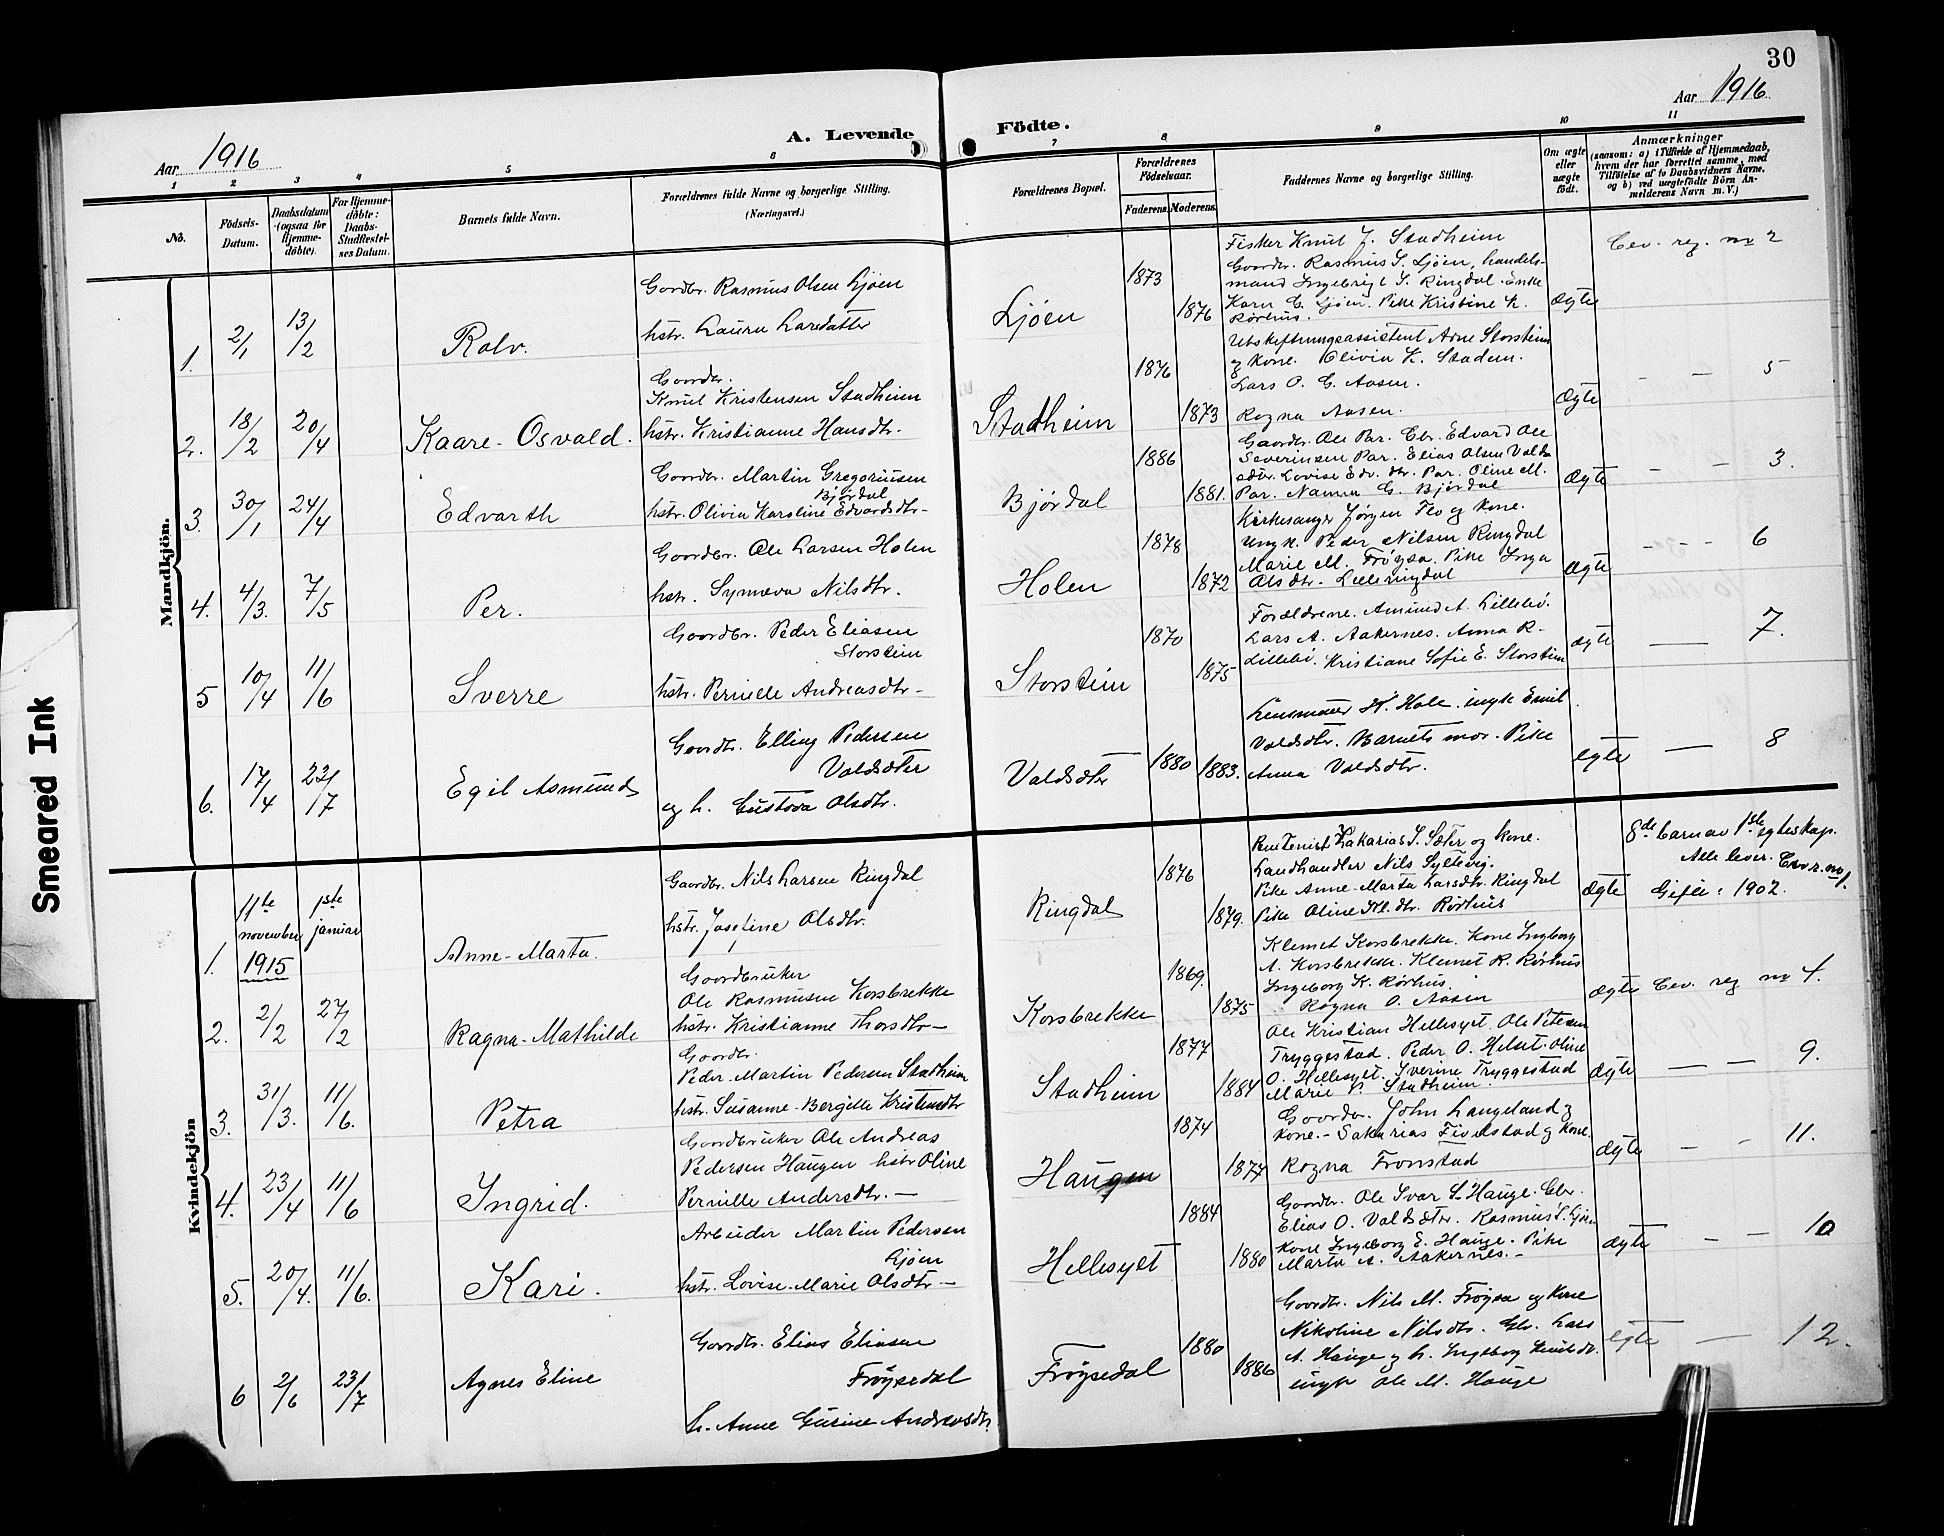 30
Aar 1916
A. Levende Födte.
Aar 1916
1 2 3 4 5 6 7 8 9 10 11
No.
Födsels-Datum.
Daabsdatum (ogsaa for Hjemme-døbte).
For Hjemme-døbte: Daabs-Stadfæstel-ses Datum.
Barnets fulde Navn.
Forældrenes fulde Navne og borgerlige Stilling.
(Næringsvei.)
Forældrenes Bopæl.
Forældrenes Födselsaar.
Faderens. Moderens.
Faddernes Navne og borgerlige Stilling.
Om ægte eller uægte født.
Anmærkninger
(saasom: a) i Tilfælde af Hjemmedaab, hvem der har forrettet samme, med Tilföielse af to Daabsvidners Navne, og b) ved uægtefödte Börn Anmelderens Navn m. V.)
Mandkjön.
1. 2/1 13/2
Rolv.
Gordbr. Rasmus Olsen Ljöen
hstr. Laura Larsdatter
Ljöen
1873
1876
Fisker Knut J. Stadheim
Goordbr. Rasmus S. Ljöen, handels-
mand Ingebrigt S. Ringdal. Enke
Karn C. Ljöen. Pike Kristine K.
Rörhus.
ægte
Lev. reg. no 2
2. 18/2 20/4
Kaare-Osvald.
Goordbr.
Knut Kristensen Stadheim
hstr. Kristianne Hansdtr.
Stadheim
1876
1873
Utskiftningsassistent Arne Storstein
og kone. Olivia K. Stadem.
Lars O. G. Aasen.
Ragna Aasen.
Ægte
— — 5
3. 30/1 24/4
Edvarth
Goordbr. Martin Gregoriusen
Björdal
hstr. Olivia Karoline Edvardsdtr-
Björdal
1886
1881.
Gaardbr. Ole Par. Gbr. Edvard Ole
Severinsen Par. Elias Olsen Valds
ædtr. Lovise Edv. dtr. Par. Oline M.
Par. Nanna G. Björdal
ægte
— — 3.
4. 4/3. 7/5
Per.
Goordbr. Ole Larsen Holen
hstr. Synneva Nilsdtr.
Holen
1878
1872
Kirkesanger Jørgen Flo og kone.
Ungk. Peder Nilsen Ringdal
Marie M. Fröysa. Pike Inga
Olsdtr. Lilleringdal
ægte
- - - 6
5 10/4 11/6
Sverre
Goordbr. Peder Eliasen
Storstein
hstr. Pernille Andreasdtr-
Storstein
1870
1875
Forældrene. Amund A. Lillebö.
Lars A. Aakernes. Anna R-
Lillebö. Kristiane Sofie E. Storstein
ægte
— 7.
6. 17/4 23/7
Egil Asmund
Goordbr. Elling Pedersen
Valdsdter
og h. Gustava Olsdtr.
Valdsdter
1880
1883.
Lensmann H. Hole. ungk Emil
Valdsdtr. Barnets mor. Pike
Anna Valdsdtr.
egte
— 8
Kvindekjön
1. 11te november 1915 1ste januar
Anne-Marta.
Gaardbr. Nils Larsen Ringdal
hstr. Josefine Olsdtr.
Ringdal
1876
1879.
Rentenist Zakarias S. Sæter og kone.
Landhandler Nils Syltevig.
Pike Anne-Marta Larsdtr. Ringdal
Pike Oline Kl. dtr. Rörhus
Ægte
8de barn av 1ste egteskap.
Alle lever. Lev. r. no 1.
Gifte: 1902.
2. 2/2 27/2
Ragna-Mathilde
Goordbruker
Ole Rasmusen Korsbrekke
hstr. Kristianne Thorsdtr-
Korsbrekke
1869.
1875
Klemet Korsbrekke. Kone Ingborg
A. Korsbrekke. Klemet R. Rörhus
Ingeborg K. Rörhus.
Ragna O. Aasen
Ægte
Lev. reg no 4.
3. 31/3. 11/6.
Petra
Goordbr.
Peder-Martin Pedersen Stadheim
hstr. Susanne-Bergitte Kristendtr
Stadheim
1877
1884
Ole Kristian Hellesylt. Ole Petersen
Tryggestad. Peder O. Helset. Oline
O. Hellesylt. Sverine Tryggestad
Marie P. Stadheim.
ægte
— — 9.
4. 23/4 11/6
Ingrid.
Goordbruker Ole Andreas
Pedersen Haugen hstr Oline
Pernille Andersdtr.—
Haugen
1874
1877
Goordbr. John Langeland og
kone.- Sakarias Fivelstad og kone.
Ragna Fronstad
ægte
— - 11.
5. 20/4. 11/6.
Kari.
Arbeider Martin Pedersen
Ljöen
hstr. Lovise-Marie Olsdtr—
Hellesylt
1884
1880
Goordbr. Ole Ivar S. Hauge. Gbr.
Elias O. Valdsdtr. Rasmus S. Ljöen
Kone Ingeborg E. Hauge. Pike
Marta A. Aakernes.-
ægte
— — 10
6 2/6 23/7
Agnes Eline
Goordbr. Elias Eliasen
Fröysedal
h. Anne Gurine Andreasdtr.
Fröysedal
1880
1886
Goordbr. Nils M. Fröysa og kone
Nikoline Nilsdtr. Gbr. Lars
A. Hauge og h. Ingeborg Knutsdtr.
ungk Ole M. Hauge
egte
— 12.
Smeared Ink